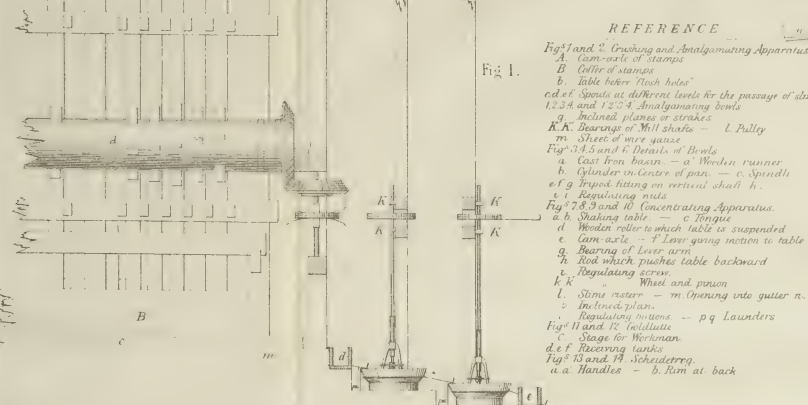 REFERENCE
Figs 1 and 2. Crushing and Amalgamating Apparatus.
A. Cam-axle of stamps
B Coffer of stamps
b. Table before "flosh holes"
c.d.e.f. Spouts at different levels for the passage of
1,2,3,4. and 1' 2' 3' 4'. Amalgamating bowls
g. Inclined planes or strakes
K.K. Bearings of Mill shafts — l. Pulley
m Sheet of wire gauze
Figs 3,4,5 and 6. Details of Bowls
a Cast Iron basin. — a' Wooden runner
b. Cylinder in Centre of pan. — c. Spindle
e f g Tripod fitting on vertical shaft h.
i i Regulating nuts
Figs 7,8,9 and 10 Concentrating Apparatus.
a.b. Shaking table. — c Tongue
d Wooden roller to which table is suspended
e Cam-axle — f Lever giving motion to table
g. Bearing of Lever arm
h Rod which pushes table backward
i. Regulating screw.
k k " Wheel and pinion
l. Slime cistern — m. Opening into gutter n.
Inclined plan.
Regulating buttons. — p q Launders
Figs 11 and 12 Goldlutte
C Stage for Workman
d e f Receiving tanks
Figs 13 and 14. Scheidetrog.
a.a Handles — b. Rim at back
Fig. 1.
d
K K
K K
B
c
m
d
e